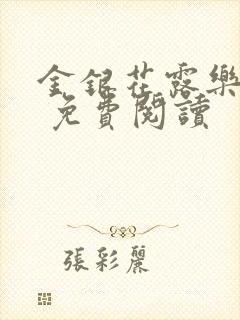 金銀花露樂
免費閱讀
張彩麗